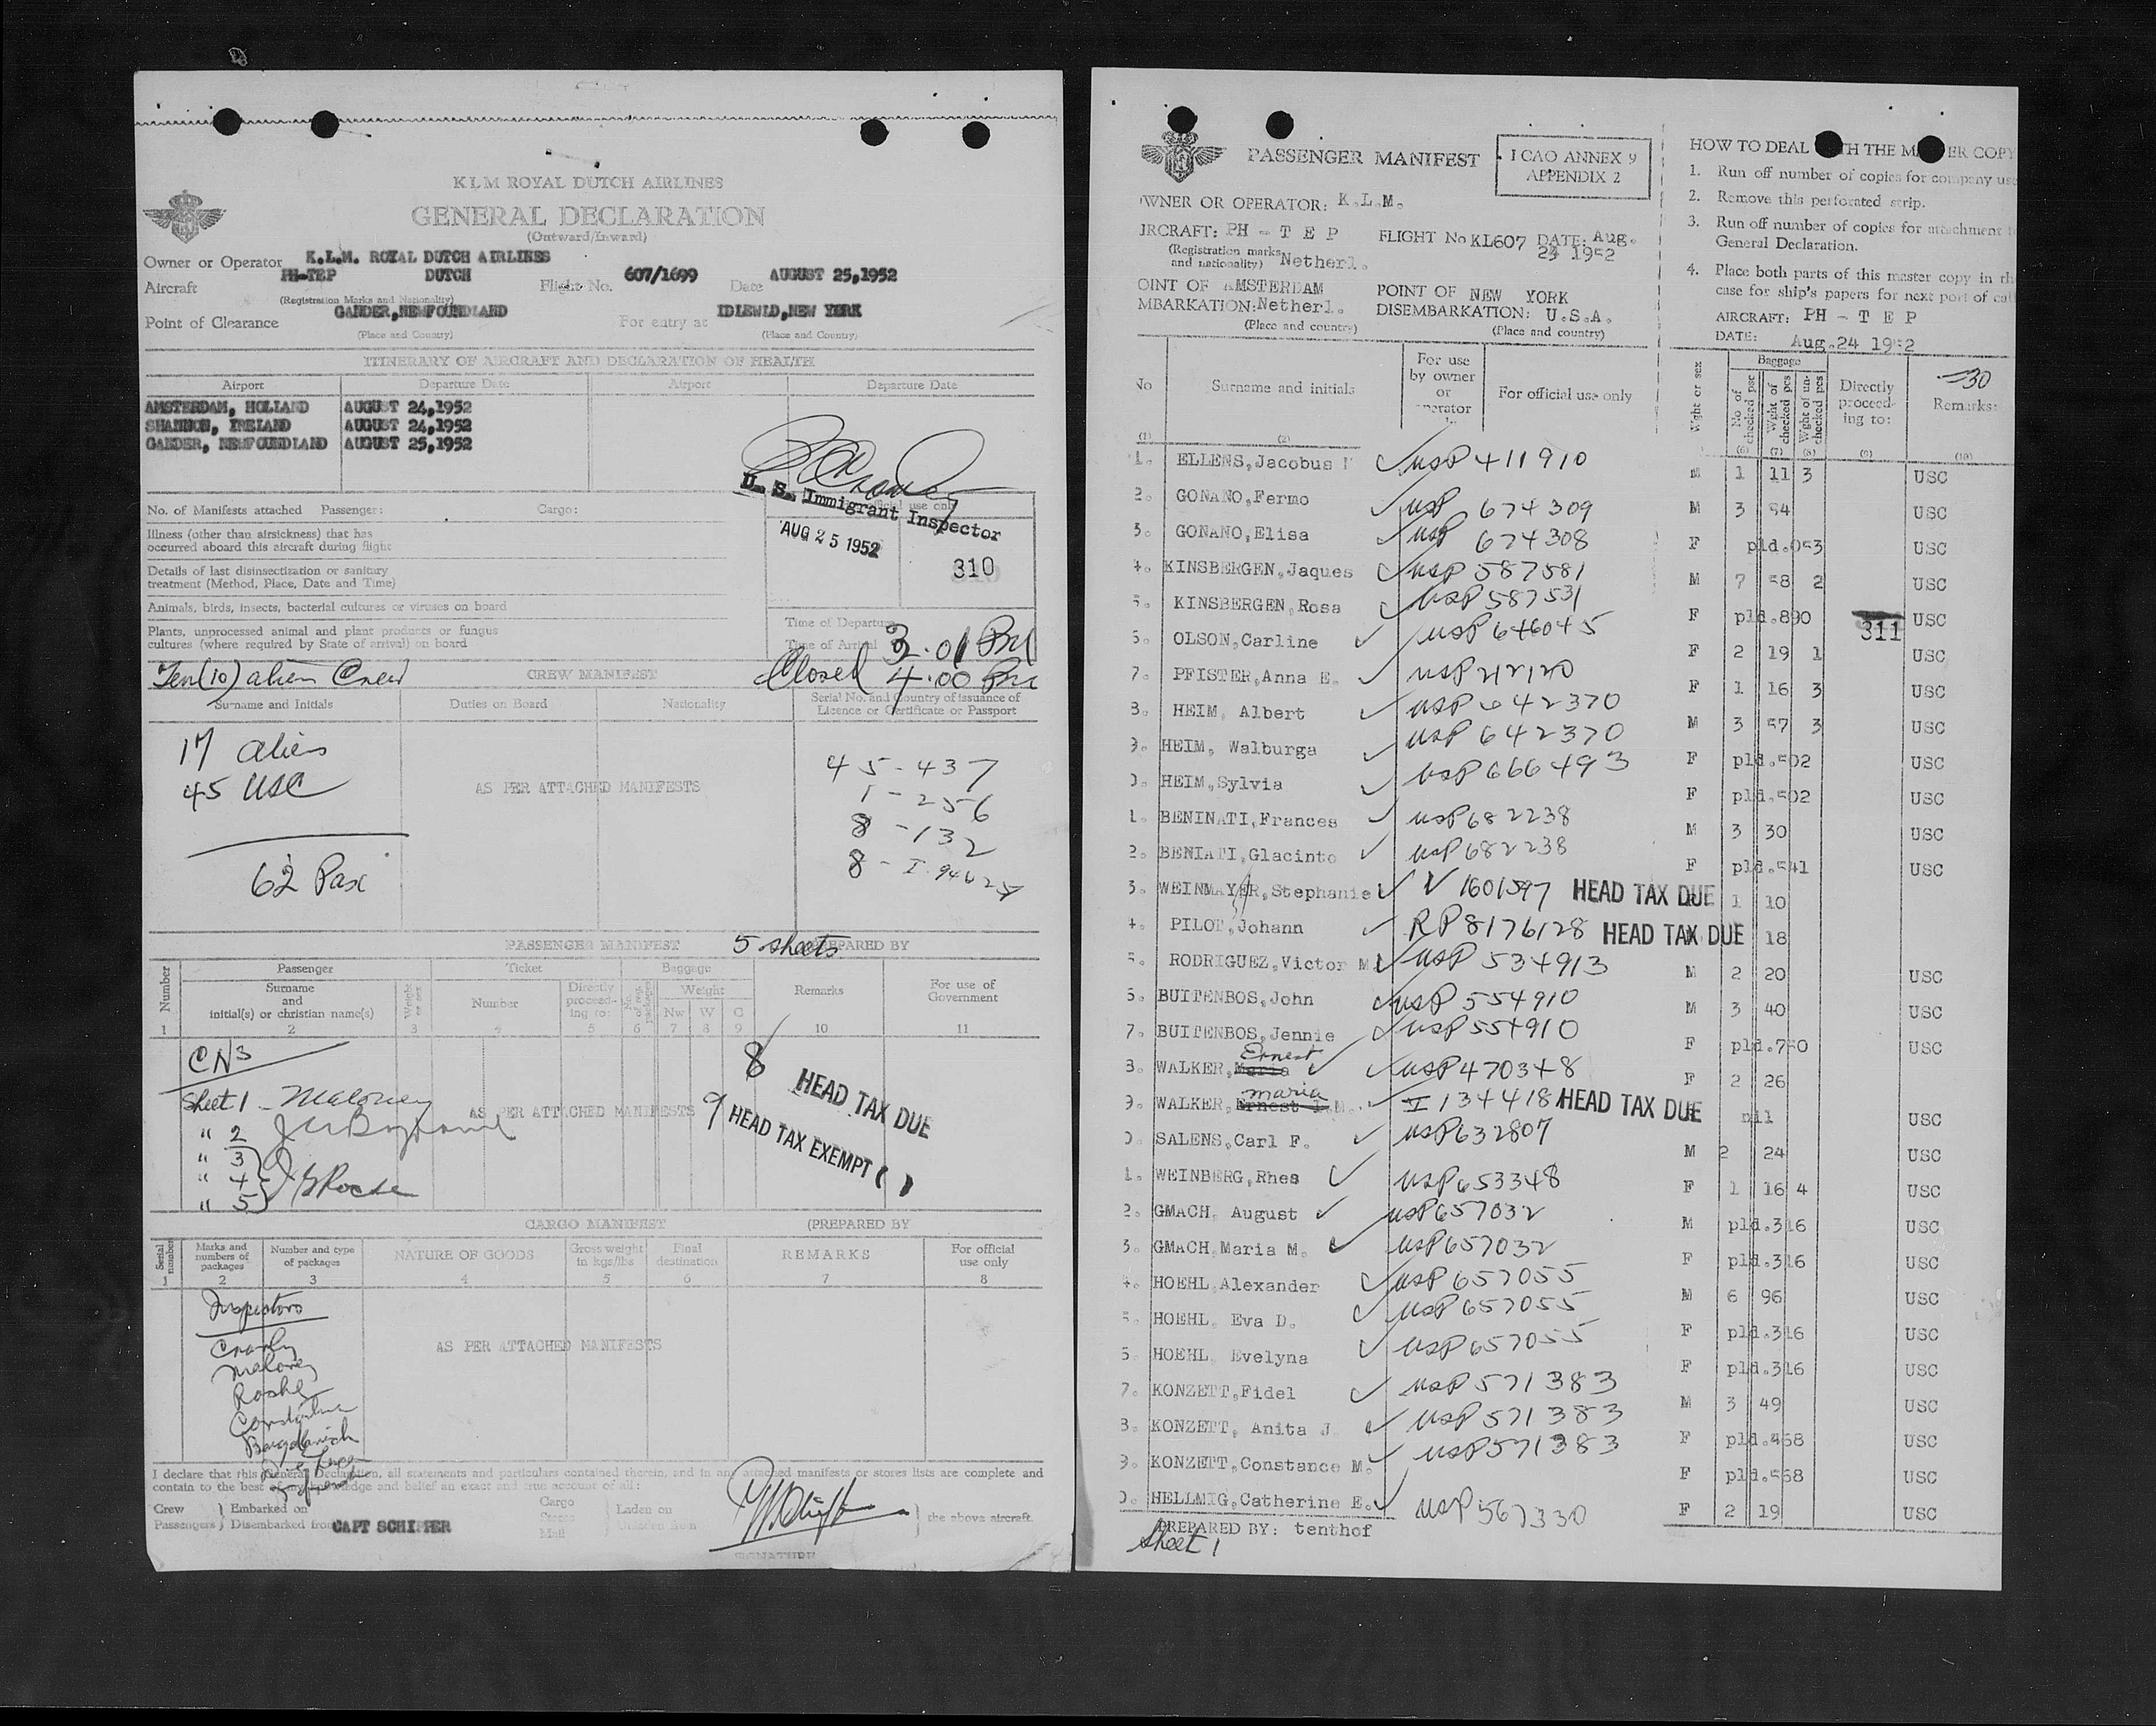 KLM ROYAL DUTCH AIRLINES
GENERAL DECLARATION
(Outward/Inward)
Owner or Operator K.L.M. ROYAL DUTCH AIRLINES
Aircraft PH-TEP DUTCH Flight No. 607/1699 Date AUGUST 25,1952
(Registration Marks and Nationality)
Point of Clearance GANDER,NEWFOUNDLAND For entry at IDLEWLD,NEW YORK
(Place and Country) (Place and Country)
ITINERARY OF AIRCRAFT AND DECLARATION OF HEALTH
Airport Departure Date Airport Departure Date
AMSTERDAM, HOLLAND AUGUST 24,1952
SHANNON, IRELAND AUGUST 24,1952
GANDER, NEWFOUNDLAND AUGUST 25,1952
U. S. Immigrant Inspector
No. of Manifests attached Passenger: Cargo: use only
Illness (other than airsickness) that has
occurred aboard this aircraft during flight
AUG 25 1952
310
Details of last disinsectization or sanitary
treatment (Method, Place, Date and Time)
Animals, birds, insects, bacterial cultures or viruses on board
Plants, unprocessed animal and plant products or fungus
cultures (where required by State of arrival) on board
Time of Departure
Time of Arrival 3.01 PM
Closed 4.00 PM
Ten (10) alien Crew CREW MANIFEST
Surname and Initials Duties on Board Nationality Serial No. and Country of issuance of
Licence or Certificate or Passport
17 aliens
45 USC
62 Pax
AS PER ATTACHED MANIFESTS
45-437
1-256
8-132
8-I
PASSENGER MANIFEST 5 sheets PREPARED BY
Number Passenger Ticket Baggage Remarks For use of
Government
Surname
and
initial(s) or christian name(s) Weight or sex Number Directly
proceed-
ing to: Weight
Nw W C
1 2 3 4 5 6 7 8 9 10 11
CN3
Sheet 1 - Maloney
" 2
" 3
" 4
" 5
AS PER ATTACHED MANIFESTS
8 HEAD TAX DUE
9 HEAD TAX EXEMPT ( )
CARGO MANIFEST (PREPARED BY
Serial number Marks and
numbers of
packages Number and type
of packages NATURE OF GOODS Gross weight
in kgs/lbs Final
destination REMARKS For official
use only
1 2 3 4 5 6 7 8
Inspectors
Maloney
AS PER ATTACHED MANIFESTS
I declare that this General Declaration, all statements and particulars contained therein, and in any attached manifests or stores lists are complete and
contain to the best of my knowledge and belief an exact and true account of all:
Crew
Passengers Embarked on
Disembarked from CAPT SCHIPPER Cargo
Stores
Mail Laden on
Unladen from the above aircraft.
SIGNATURE
PASSENGER MANIFEST
I CAO ANNEX 9
APPENDIX 2
OWNER OR OPERATOR: K.L.M.
IRCRAFT: PH - T E P FLIGHT No KL607 DATE: Aug.
24 1952
(Registration marks
and nationality) Netherl.
OINT OF AMSTERDAM POINT OF NEW YORK
MBARKATION: Netherl. DISEMBARKATION: U.S.A.
(Place and country) (Place and country)
HOW TO DEAL TH THE M ER COPY
1. Run off number of copies for company use
2. Remove this perforated strip.
3. Run off number of copies for attachment
General Declaration.
4. Place both parts of this master copy in th
case for ship's papers for next port of cal
AIRCRAFT: PH - T E P
DATE: Aug.24 1952
No Surname and initials For use
by owner
or
operator For official use only Wight or sex Baggage
No. of checked psc Wight of checked pcs Wght of un-checked pcs Directly
proceed-
ing to: 30
Remarks:
(1) (2) (6) (7) (8) (9) (10)
1. ELLENS,Jacobus USP 411910 M 1 11 3 USC
2. GONANO,Fermo USP 674309 M 3 54 USC
3. GONANO,Elisa USP 674308 F pld.053 USC
4. KINSBERGEN,Jaques USP 587581 M 7 58 2 USC
5. KINSBERGEN,Rosa USP 587531 F pld.890 311 USC
6. OLSON,Carline USP 646045 F 2 19 1 USC
7. PFISTER,Anna E. USP 212120 F 1 16 3 USC
8. HEIM, Albert USP 642370 M 3 57 3 USC
9. HEIM, Walburga USP 642370 F pld.502 USC
0. HEIM,Sylvia USP 666493 F pld.502 USC
1. BENINATI,Frances USP 682238 M 3 30 USC
2. BENIATI,Glacinto USP 682238 F pld.541 USC
3. WEINMAYER,Stephanie V 1601597 HEAD TAX DUE 1 10
4. PILOT,Johann RP 8176128 HEAD TAX DUE 18
5. RODRIGUEZ,Victor M. USP 534913 M 2 20 USC
6. BUITENBOS,John USP 554910 M 3 40 USC
7. BUITENBOS,Jennie USP 554910 F pld.750 USC
8. WALKER,Maria Ernest USP 470348 F 2 26
9. WALKER,Ernest J.M. maria I 134418 HEAD TAX DUE pll USC
0. SALENS,Carl F. USP 632807 M 2 24 USC
1. WEINBERG,Rhea USP 653348 F 1 16 4 USC
2. GMACH, August USP 657032 M pld.316 USC
3. GMACH,Maria M. USP 657032 F pld.316 USC
4. HOEHL,Alexander USP 657055 M 6 96 USC
5. HOEHL, Eva D. USP 657055 F pld.316 USC
6. HOEHL, Evelyna USP 657055 F pld.316 USC
7. KONZETT,Fidel USP 571383 M 3 49 USC
8. KONZETT, Anita J USP 571383 F pld.468 USC
9. KONZETT,Constance M. USP 571383 F pld.568 USC
0. HELLMIG,Catherine E. USP 567330 F 2 19 USC
PREPARED BY: tenthof
Sheet 1